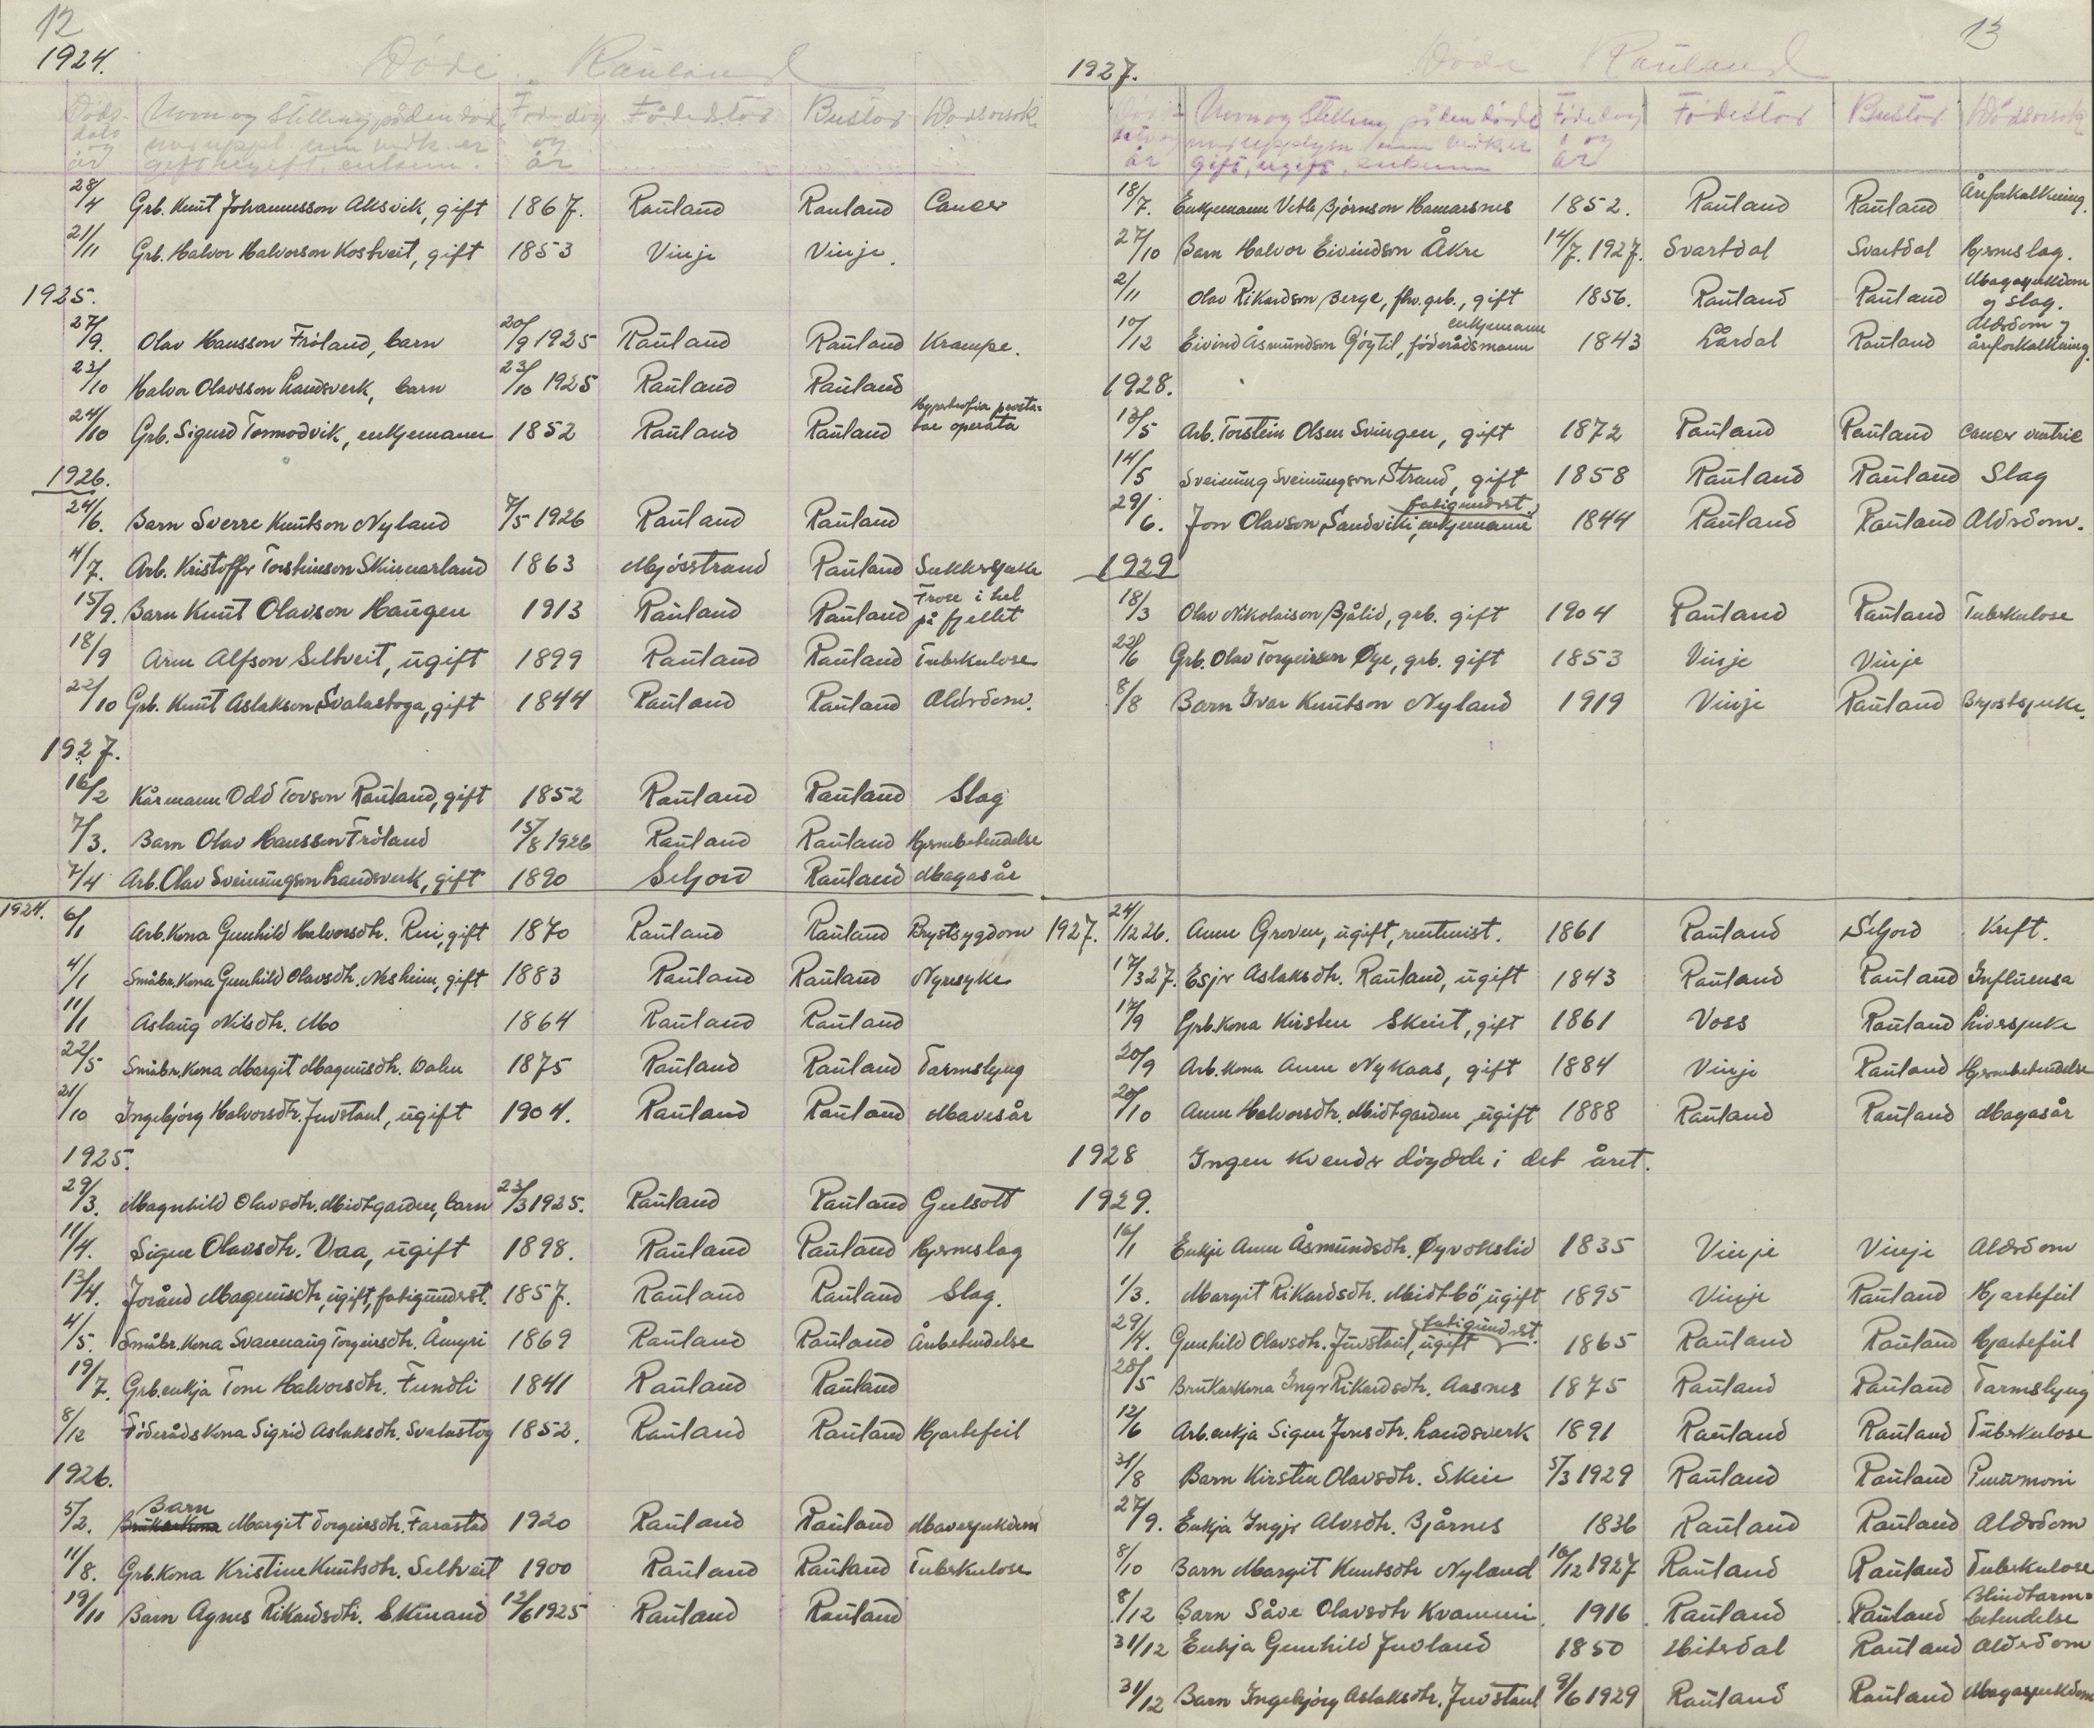 12
1924.
Døde Rauland
Døds- dato og år | Namn og Stilling på den døde, med uppl. um vedk. er gift, ugift, enkem. | Fødedag og år | Fødestad | Bustad | Dødsorsak
28/4 Grb. Knut Johannesson Aksvik, gift 1867. Rauland Rauland Cancer
21/11 Grb. Halvor Halvorson Kostveit, gift 1853 Vinje Vinje.
1925.
27/9. Olav Hansson Frøland, barn 20/9 1925 Rauland Rauland Krampe.
23/10 Halvor Olavsson Landsverk, barn 23/10 1925 Rauland Rauland
24/10 Grb. Sigurd Tormodvik, enkjemann 1852 Rauland Rauland Hypertrofia prosta- tae operata
1926.
24/6. Barn Sverre Knutson Nyland 7/5 1926 Rauland Rauland
4/7. Arb. Kristoffer Torsteinson Skinnarland 1863 Mjøsstrand Rauland Sukkersjuke
15/9. Barn Knut Olavson Haugen 1913 Rauland Rauland Fros i hel på fjellet
18/9 Arne Alfson Seltveit, ugift 1899 Rauland Rauland Tuberkulose
22/10 Grb. Knut Aslakson Svalastoga, gift 1844 Rauland Rauland Alderdom.
1927.
16/2 Kårmann Odd Tovson Rauland, gift 1852 Rauland Rauland Slag
7/3. Barn Olav Hansson Frøland 15/8 1926 Rauland Rauland Hjernebetendelse
7/4 Arb. Olav Sveinungson Landsverk, gift 1890 Seljord Rauland Magasår
1924. 6/1 Arb.kona Gunhild Halvorsdtr. Rui, gift 1870 Rauland Rauland Brystsygdom
4/1 Småbr.kona Gunhild Olavsdtr. Nesheim, gift 1883 Rauland Rauland Nyresyke
11/1 Aslaug Nilsdtr. Mo 1864 Rauland Rauland
22/5 Småbr.kona Margit Magnusdtr. Dalen 1875 Rauland Rauland Tarmslyng
21/10 Ingebjørg Halvorsdtr. Juvstaul, ugift 1904. Rauland Rauland Mavesår
1925.
29/3. Magnhild Olavsdtr. Midtgarden, barn 23/3 1925. Rauland Rauland Gulsott
11/4. Signe Olavsdtr. Vaa, ugift 1898. Rauland Rauland Hjerneslag
13/4. Jorånd Magnusdtr, ugift, fatigunderst. 1857. Rauland Rauland Slag.
4/5. Småbr.kona Svanaug Torgeirsdtr. Åmyri 1869 Rauland Rauland Årebetendelse
19/7. Grb.enkja Tone Halvorsdtr. Fundli 1841 Rauland Rauland
8/12 Føderådskona Sigrid Aslaksdtr. Svalastog 1852. Rauland Rauland Hjartefeil
1926.
5/2. Barn Margit Torgeirsdtr. Farastad 1920 Rauland Rauland Mavesjukdom
11/8. Grb.kona Kristine Knutsdtr. Seltveit 1900 Rauland Rauland Tuberkulose
19/11 Barn Agnes Rikardsdtr. Skinand 12/6 1925 Rauland Rauland
13
1927.
Døde Rauland
Døds- dato og år | Namn og Stilling på den døde med upplysn. um vedk. er gift, ugift, enkem. | Fødedag og år | Fødestad | Bustad | Dødsorsak
18/7. Enkjemann Vetle Bjørnson Hamarsnes 1852. Rauland Rauland Åreforkalkning.
27/10 Barn Halvor Eivindson Åkre 14/7. 1927. Svartdal Svartdal Hjerneslag.
2/11 Olav Rikardson Berge, fhv. grb., gift 1856. Rauland Rauland Magasjukdom og slag.
10/12 Eivind Åsmundson Gøytil, føderådsmann enkjemann 1843 Lårdal Rauland Alderdom og åreforkalkning.
1928.
13/5 Arb. Torstein Olsen Svingen, gift 1872 Rauland Rauland Cancer ventric
14/5 Sveinung Sveinungson Strand, gift 1858 Rauland Rauland Slag
29/6. Jon Olavson Sandviki, enkjemann fatigunderst. 1844 Rauland Rauland Alderdom.
1929
18/3 Olav Nikolaison Bjålid, grb. gift 1904 Rauland Rauland Tuberkulose
22/6 Grb. Olav Torgeirson Øye, grb. gift 1853 Vinje Vinje
8/8 Barn Ivar Knutson Nyland 1919 Vinje Rauland Brystsjuke.
1927. 24/12 26. Anne Groven, ugift, rentenist. 1861 Rauland Seljord Kreft.
17/3 27. Esjer Aslaksdtr. Rauland, ugift 1843 Rauland Rauland Influensa
17/9 Grb.kona Kirsten Skeie, gift 1861 Voss Rauland Liversjuke
20/9 Arb.kona Anne Nykaas, gift 1884 Vinje Rauland Hjernebetendelse
20/10 Anne Halvorsdtr. Midtgarden, ugift 1888 Rauland Rauland Magasår
1928 Ingen kvender døydde i det året.
1929.
16/1 Enkje Anne Åsmundsdtr. Øyvokslid 1835 Vinje Vinje Alderdom
1/3. Margit Rikardsdtr. Midtbö, ugift 1895 Vinje Rauland Hjartefeil
29/4. Gunhild Olavsdtr. Juvstaul, ugift fatigunderst. 1865 Rauland Rauland Hjartefeil
28/5 Brukarkona Inger Rikardsdtr. Aasnes 1875 Rauland Rauland Tarmslyng
12/6 Arb.enkja Signe Jonsdtr. Landsverk 1891 Rauland Rauland Tuberkulose
31/8 Barn Kirsten Olavsdtr. Skeie 5/3 1929 Rauland Rauland Pneumoni
27/9. Enkja Ingjer Alvsdtr. Bjårnes 1836 Rauland Rauland Alderdom
8/10 Barn Margit Knutsdtr Nyland 16/12 1927 Rauland Rauland Tuberkulose
8/12 Barn Såve Olavsdtr Kvammi 1916 Rauland Rauland Blindtarms- betendelse
31/12 Enkja Gunhild Juvland 1850 Hiterdal Rauland Alderdom
31/12 Barn Ingebjørg Aslaksdtr. Juvstaul 9/6 1929 Rauland Rauland Magasjukdom